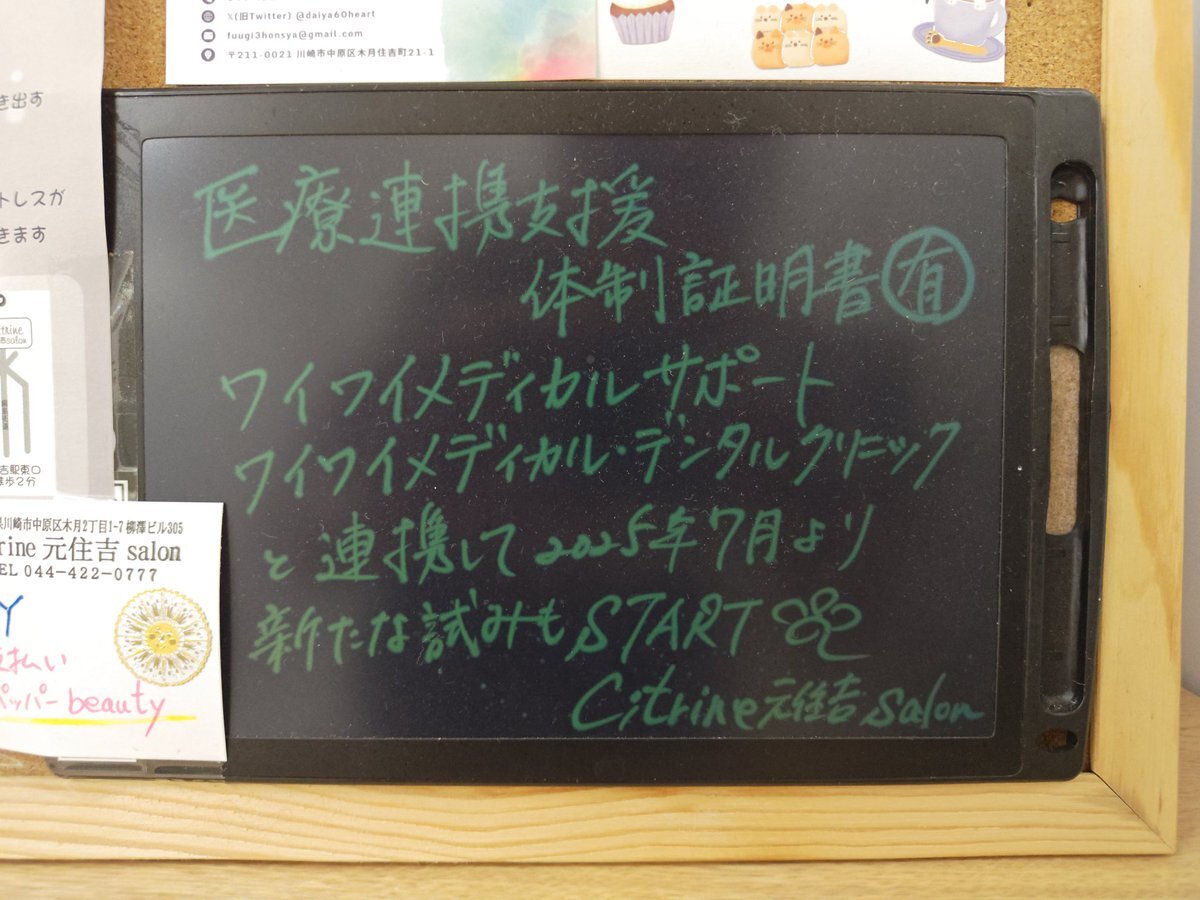 X(旧Twitter) @daiya60heart
fuugi3honsya@gmail.com
〒211-0021 川崎市中原区木月住吉町21-1
き出す
トレスが
きます
trine
salon
吉駅東口
歩2分
川崎市中原区木月2丁目1-7 柳澤ビル305
rine 元住吉 salon
EL 044-422-0777
Y
払い
ペッパーbeauty
医療連携支援
体制証明書㊒
ワイワイメディカルサポート
ワイワイメディカル・デンタルクリニック
と連携して2025年7月より
新たな試みもSTART
Citrine元住吉salon